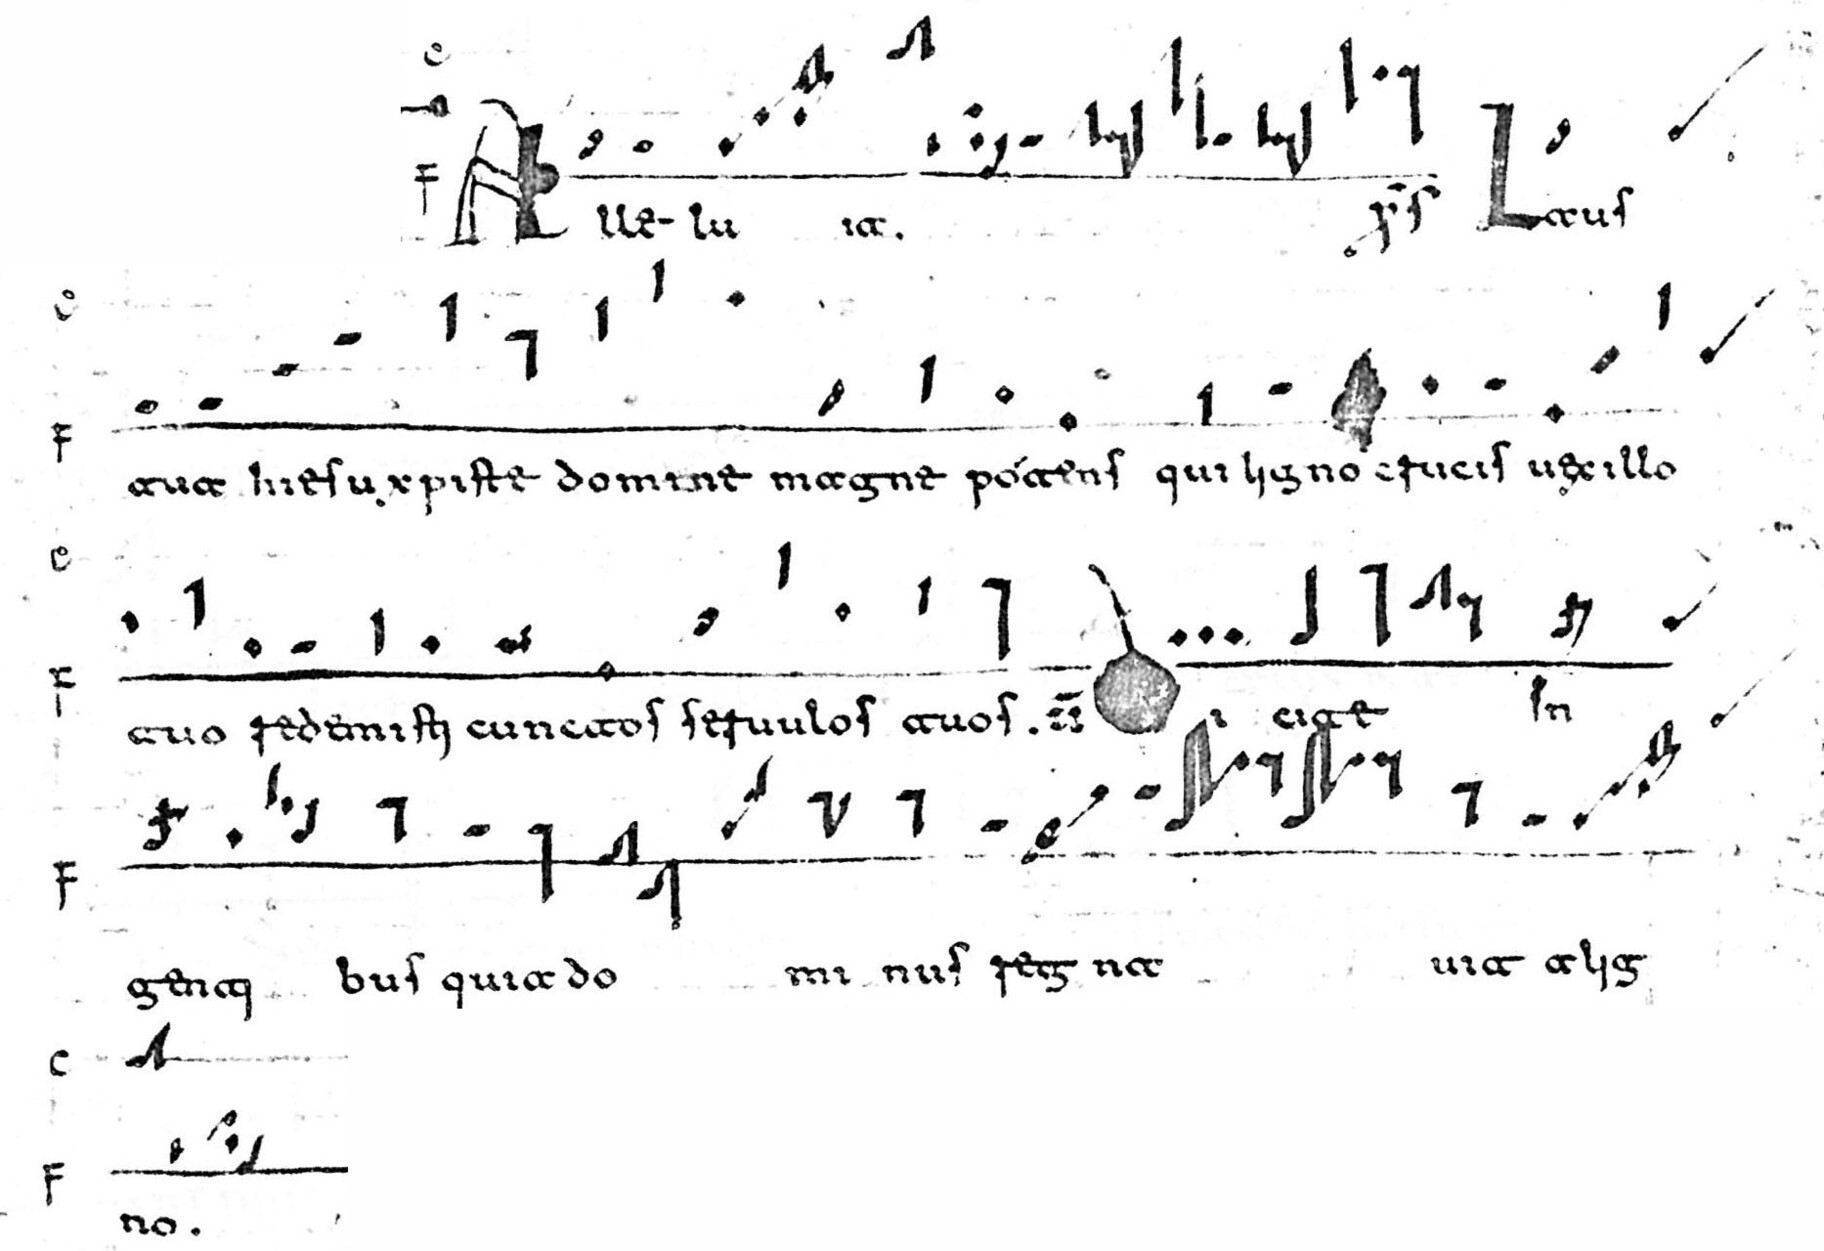 Alle-lu ia. P̄s Laus
tua hiesu xpiste domine magne potens qui ligno crucis uexillo
tuo redemisti cunctos seruulos tuos. i cite In
genti bus quia do mi nus reg na uit a lig
no.